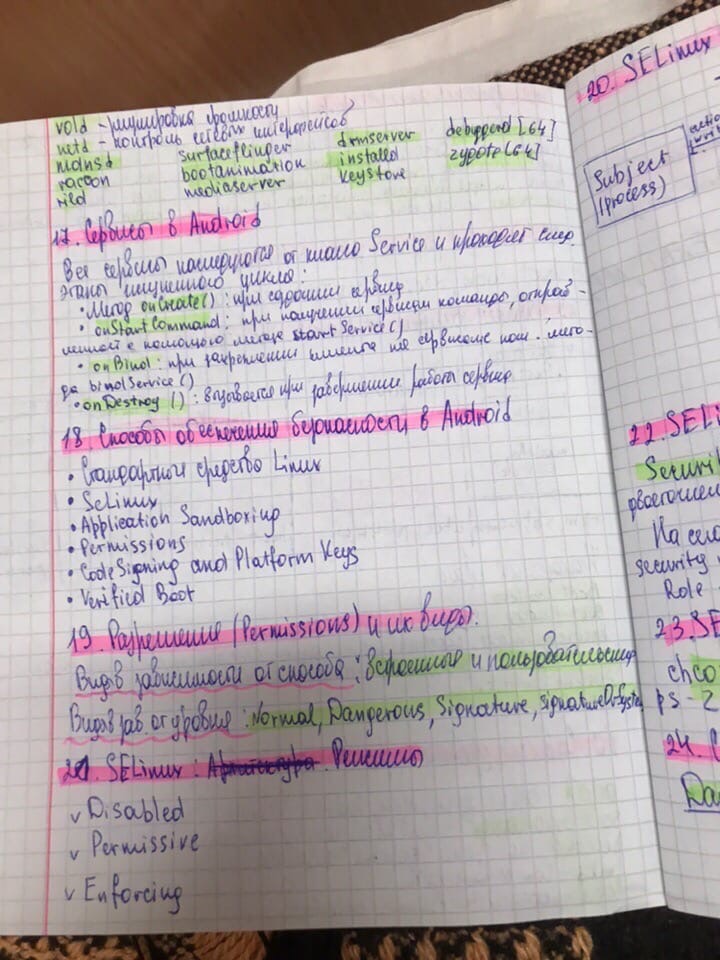 vold -
netd - контроль сетевых интерфейсов
mdnsd surfaceflinger drmserver debuggerd [64]
racoon bootanimation installd zygote [64]
rild mediaserver keystore
17. Сервисы в Android
Все сервисы наследуются от класса Service и проходят след.
этапы жизненного цикла:
• Метод onCreate(): при создании сервиса
• onStartCommand: при получении сервисом команды, отправ-
ленной с помощью метода startService()
• onBind: при закреплении клиента за сервисом пом. мето-
да bindService()
• onDestroy(): вызывается при завершении работы сервиса
18. Способы обеспечения безопасности в Android
• Стандартные средства Linux
• SeLinux
• Application Sandboxing
• Permissions
• Code Signing and Platform Keys
• Verified Boot
19. Разрешения (Permissions) и их виды.
Виды в зависимости от способа: встроенные и пользовательские
Виды в зав. от уровня: Normal, Dangerous, Signature, signatureOrSystem
21. SELinux: Архитектура. Режимы
v Disabled
v Permissive
v Enforcing
20. SELinux
Subject
(process)
22. SELi
Securit
двоеточием
На сегод
security
Role
23. SE
chco
ps -Z
24.
Da